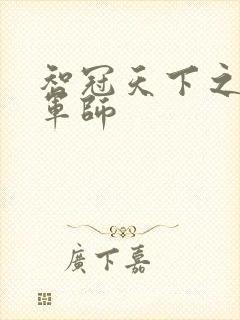 智冠天下之
軍師
廣下嘉